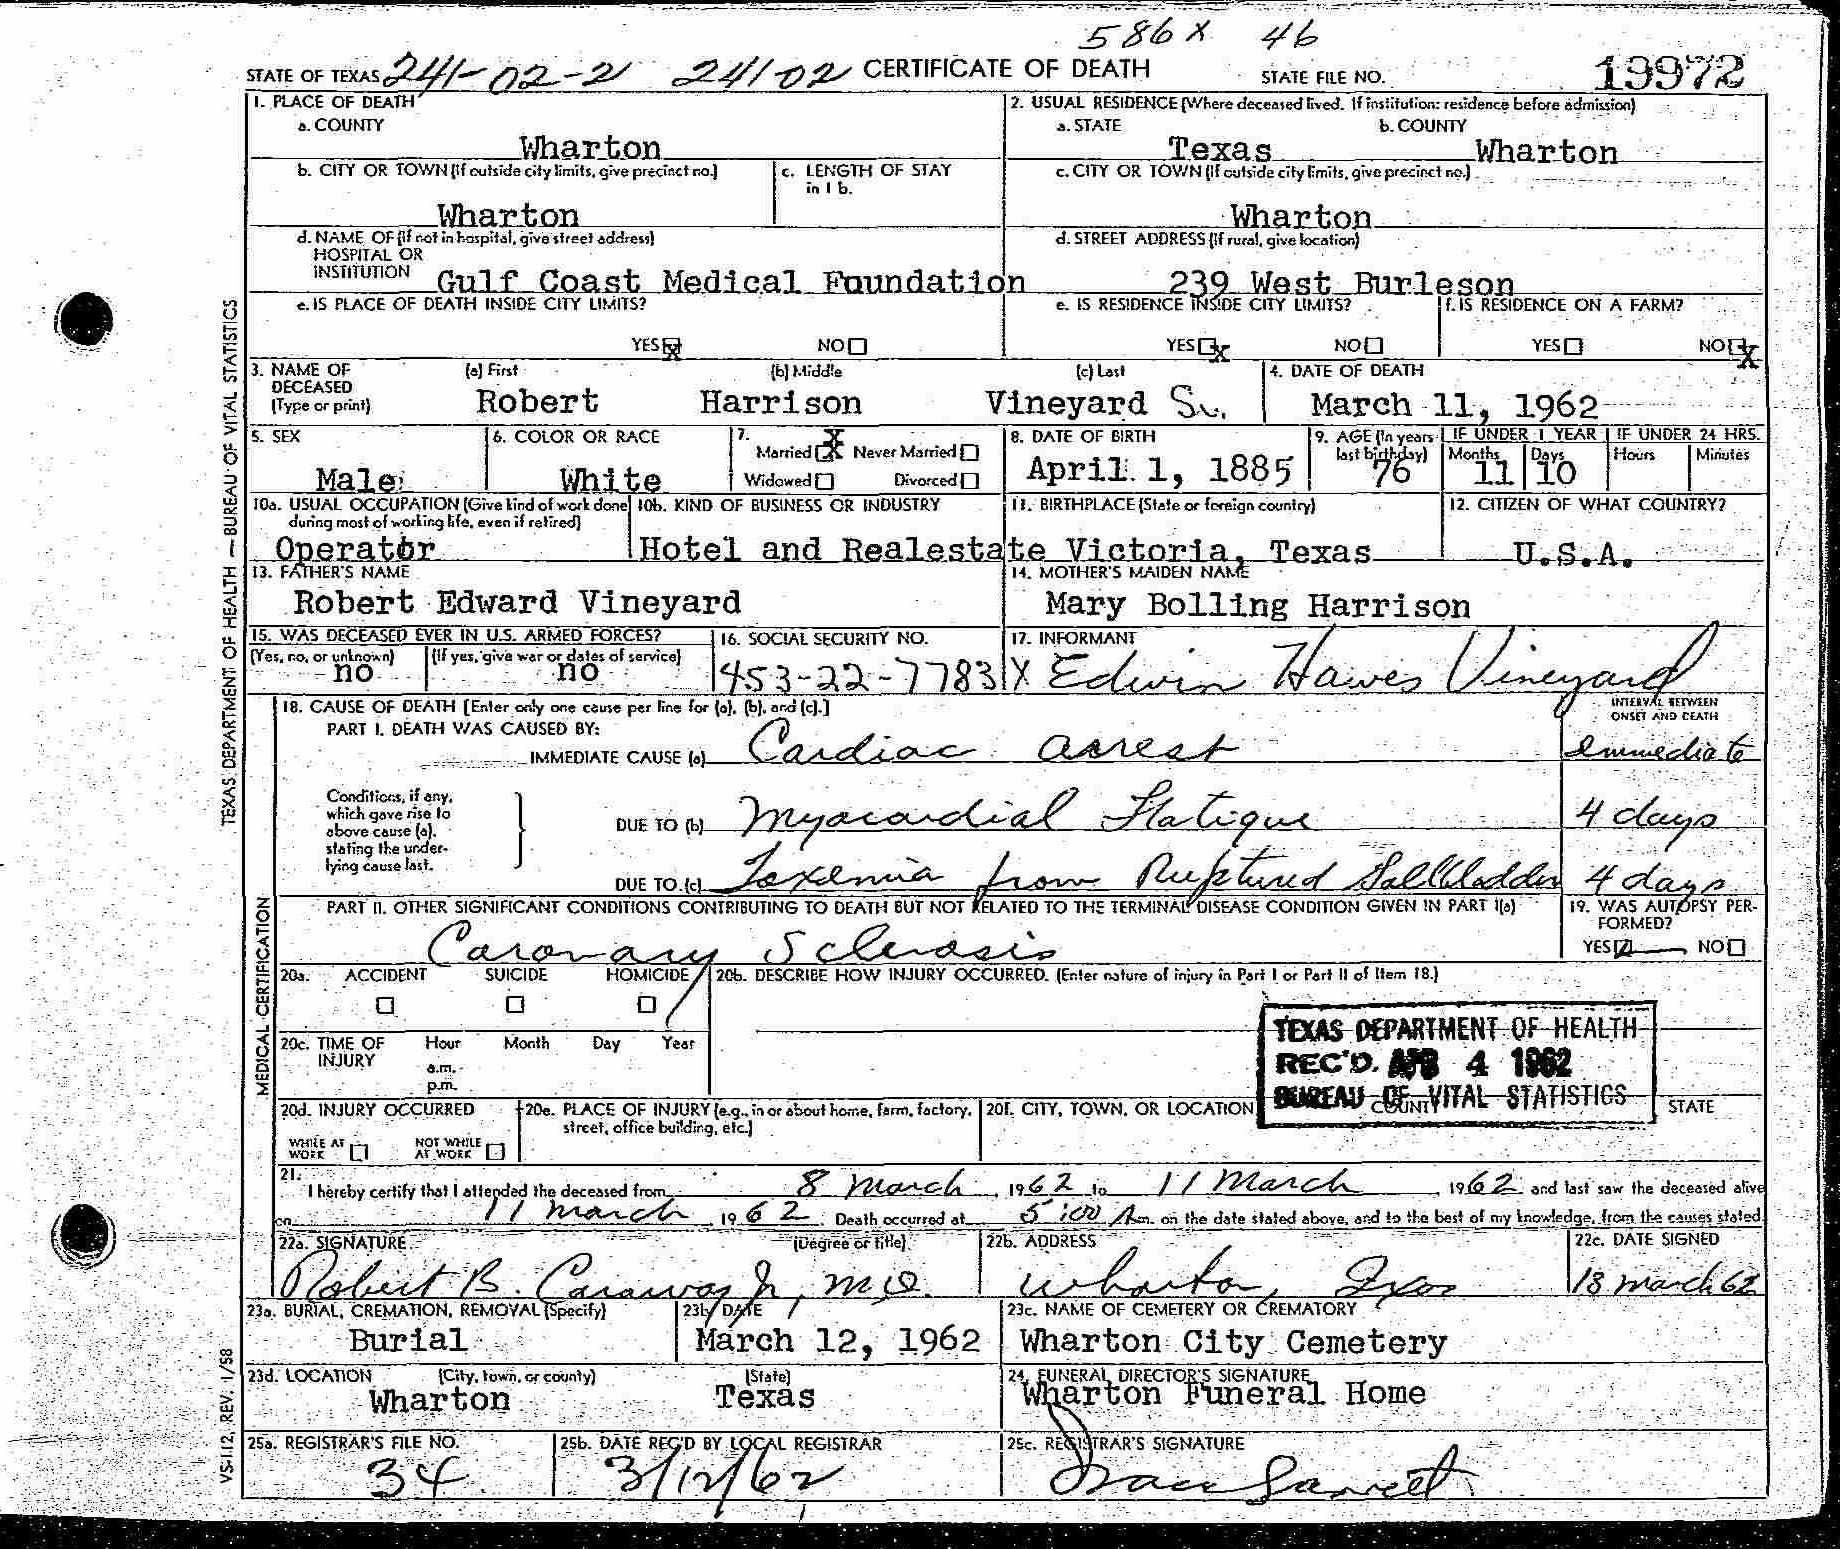 586 X 46
STATE OF TEXAS 241-02-2 241 02 CERTIFICATE OF DEATH STATE FILE NO. 19972
1. PLACE OF DEATH
a. COUNTY
Wharton
2. USUAL RESIDENCE (Where deceased lived. If institution: residence before admission)
a. STATE b. COUNTY
Texas Wharton
b. CITY OR TOWN (If outside city limits, give precinct no.)
Wharton
c. LENGTH OF STAY
in 1 b.
c. CITY OR TOWN (If outside city limits, give precinct no.)
Wharton
d. NAME OF (If not in hospital, give street address)
HOSPITAL OR
INSTITUTION Gulf Coast Medical Foundation
d. STREET ADDRESS (If rural, give location)
239 West Burleson
e. IS PLACE OF DEATH INSIDE CITY LIMITS?
YES X NO
e. IS RESIDENCE INSIDE CITY LIMITS?
YES X NO
f. IS RESIDENCE ON A FARM?
YES NO X
3. NAME OF
DECEASED
(Type or print)
(a) First (b) Middle (c) Last
Robert Harrison Vineyard Sr.
4. DATE OF DEATH
March 11, 1962
5. SEX
Male
6. COLOR OR RACE
White
7. X
Married X Never Married
Widowed Divorced
8. DATE OF BIRTH
April 1, 1885
9. AGE (In years
last birthday)
76
IF UNDER 1 YEAR
Months Days
11 10
IF UNDER 24 HRS.
Hours Minutes
10a. USUAL OCCUPATION (Give kind of work done
during most of working life, even if retired)
Operator
10b. KIND OF BUSINESS OR INDUSTRY
Hotel and Realestate
11. BIRTHPLACE (State or foreign country)
Victoria, Texas
12. CITIZEN OF WHAT COUNTRY?
U.S.A.
13. FATHER'S NAME
Robert Edward Vineyard
14. MOTHER'S MAIDEN NAME
Mary Bolling Harrison
15. WAS DECEASED EVER IN U.S. ARMED FORCES?
(Yes, no, or unknown) (If yes, give war or dates of service)
no no
16. SOCIAL SECURITY NO.
453-22-7783
17. INFORMANT
X Edwin Hawes Vineyard
18. CAUSE OF DEATH [Enter only one cause per line for (a), (b), and (c).]
INTERVAL BETWEEN
ONSET AND DEATH
PART I. DEATH WAS CAUSED BY:
IMMEDIATE CAUSE (a) Cardiac arrest immediate
Conditions, if any,
which gave rise to
above cause (a),
stating the under-
lying cause last.
DUE TO (b) Myocardial Fatigue 4 days
DUE TO (c) Toxemia from Ruptured Gallbladder 4 days
PART II. OTHER SIGNIFICANT CONDITIONS CONTRIBUTING TO DEATH BUT NOT RELATED TO THE TERMINAL DISEASE CONDITION GIVEN IN PART I(a)
Coronary Sclerosis
19. WAS AUTOPSY PER-
FORMED?
YES NO
20a. ACCIDENT SUICIDE HOMICIDE
20b. DESCRIBE HOW INJURY OCCURRED. (Enter nature of injury in Part I or Part II of Item 18.)
20c. TIME OF
INJURY
Hour Month Day Year
a.m.
p.m.
TEXAS DEPARTMENT OF HEALTH
REC'D. APR 4 1962
BUREAU OF VITAL STATISTICS
20d. INJURY OCCURRED
WHILE AT
WORK
NOT WHILE
AT WORK
20e. PLACE OF INJURY (e.g., in or about home, farm, factory,
street, office building, etc.)
20f. CITY, TOWN, OR LOCATION COUNTY STATE
21.
I hereby certify that I attended the deceased from 8 March, 1962 to 11 March 1962 and last saw the deceased alive
on 11 March 1962. Death occurred at 5:00 A m. on the date stated above, and to the best of my knowledge, from the causes stated.
22a. SIGNATURE (Degree or title)
Robert B. Caraway Jr, M.D.
22b. ADDRESS
Wharton, Texas
22c. DATE SIGNED
13 March 62
23a. BURIAL, CREMATION, REMOVAL (Specify)
Burial
23b. DATE
March 12, 1962
23c. NAME OF CEMETERY OR CREMATORY
Wharton City Cemetery
23d. LOCATION (City, town, or county) (State)
Wharton Texas
24. FUNERAL DIRECTOR'S SIGNATURE
Wharton Funeral Home
25a. REGISTRAR'S FILE NO.
34
25b. DATE REC'D BY LOCAL REGISTRAR
3/12/62
25c. REGISTRAR'S SIGNATURE
TEXAS DEPARTMENT OF HEALTH — BUREAU OF VITAL STATISTICS
MEDICAL CERTIFICATION
VS-12, REV. 1/58